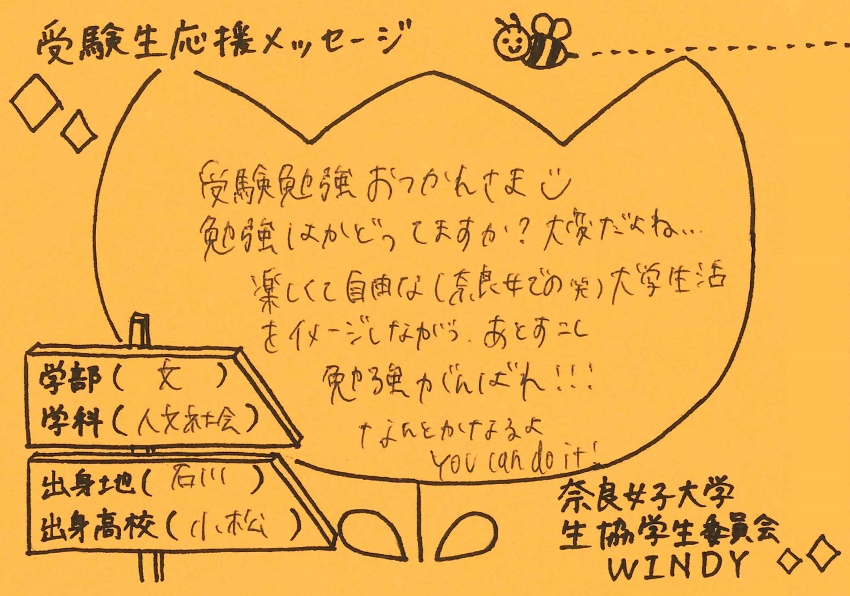 受験生応援メッセージ
受験勉強おつかれさま
勉強はかどってますか?大変だよね...
楽しくて自由な(奈良女での(笑)大学生活
をイメージしながら、あとすこし
勉強がんばれ!!!
なんとかなるよ
You can do it!
学部(文)
学科(人文社会)
出身地(石川)
出身高校(小松)
奈良女子大学
生協学生委員会
WINDY